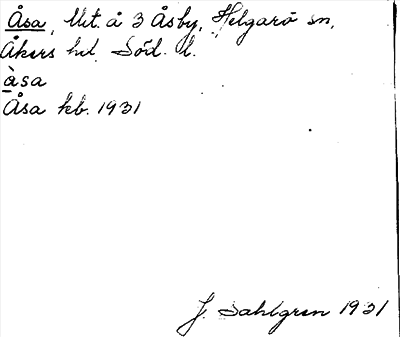 Åsa, Utj. å 3 Åsby, Helgarö sn,
Åkers hd, Söd. l.
àsa
Åsa kb. 1931
J. Sahlgren 1931